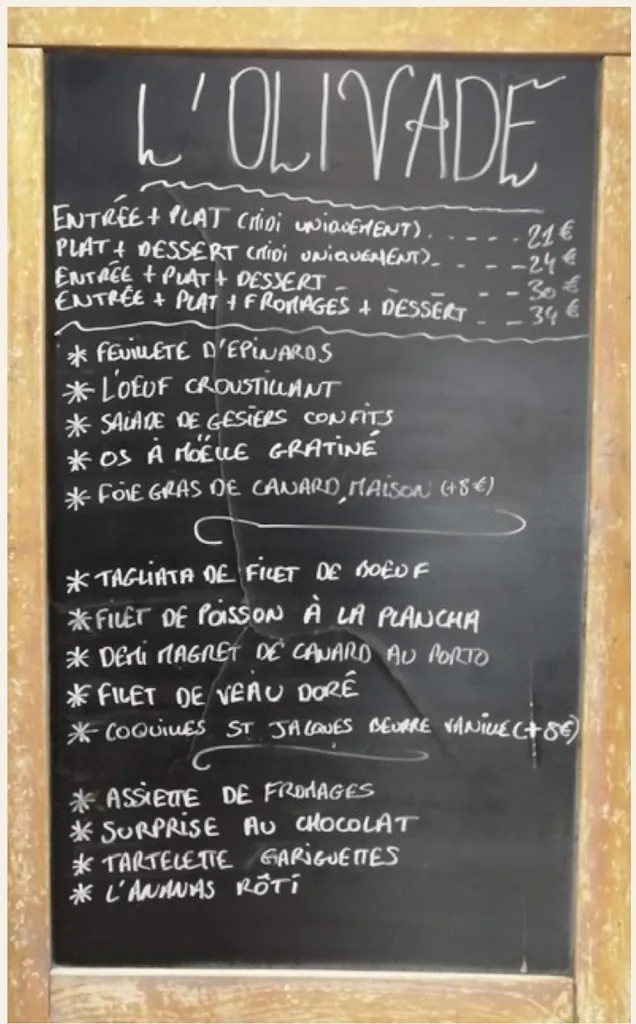 L'OLIVADE
ENTRÉE + PLAT (MIDI UNIQUEMENT). - - - - 21 €
PLAT + DESSERT (MIDI UNIQUEMENT)- - - - 24 €
ENTRÉE + PLAT + DESSERT - - - - - 30 €
ENTRÉE + PLAT + FROMAGES + DESSERT - - 34 €
* FEUILLETE D'EPINARDS
* L'OEUF CROUSTILLANT
* SALADE DE GESIERS CONFITS
* OS À MOËLLE GRATINÉ
* FOIE GRAS DE CANARD, MAISON (+8€)
* TAGLIATA DE FILET DE BOEUF
* FILET DE POISSON À LA PLANCHA
* DEMI MAGRET DE CANARD AU PORTO
* FILET DE VEAU DORÉ
* COQUILLES ST JACQUES BEURRE VANILLE (+8€)
* ASSIETTE DE FROMAGES
* SURPRISE AU CHOCOLAT
* TARTELETTE GARIGUETTES
* L'ANANAS RÔTI